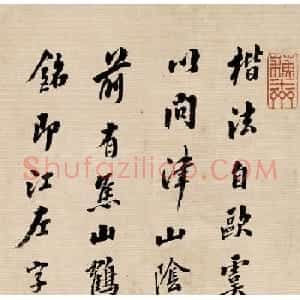 楷法自歐虞
以問津山陰
前有焦山鶴
銘即江左字
Shufaziliao.com